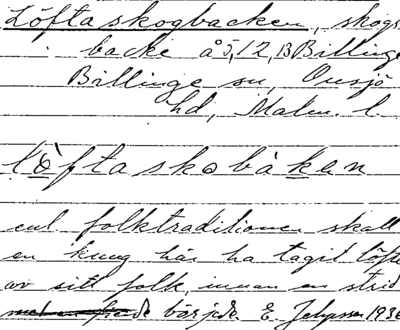 Löftaskogbacken, skogs
backe å 5, 12, 13 Billinge
Billinge sn, Onsjö
hd, Malm. l.
löftaskobàken
enl folktraditionen skall
en kung här ha tagit löft
av sitt folk, innan en strid
började E. 1936